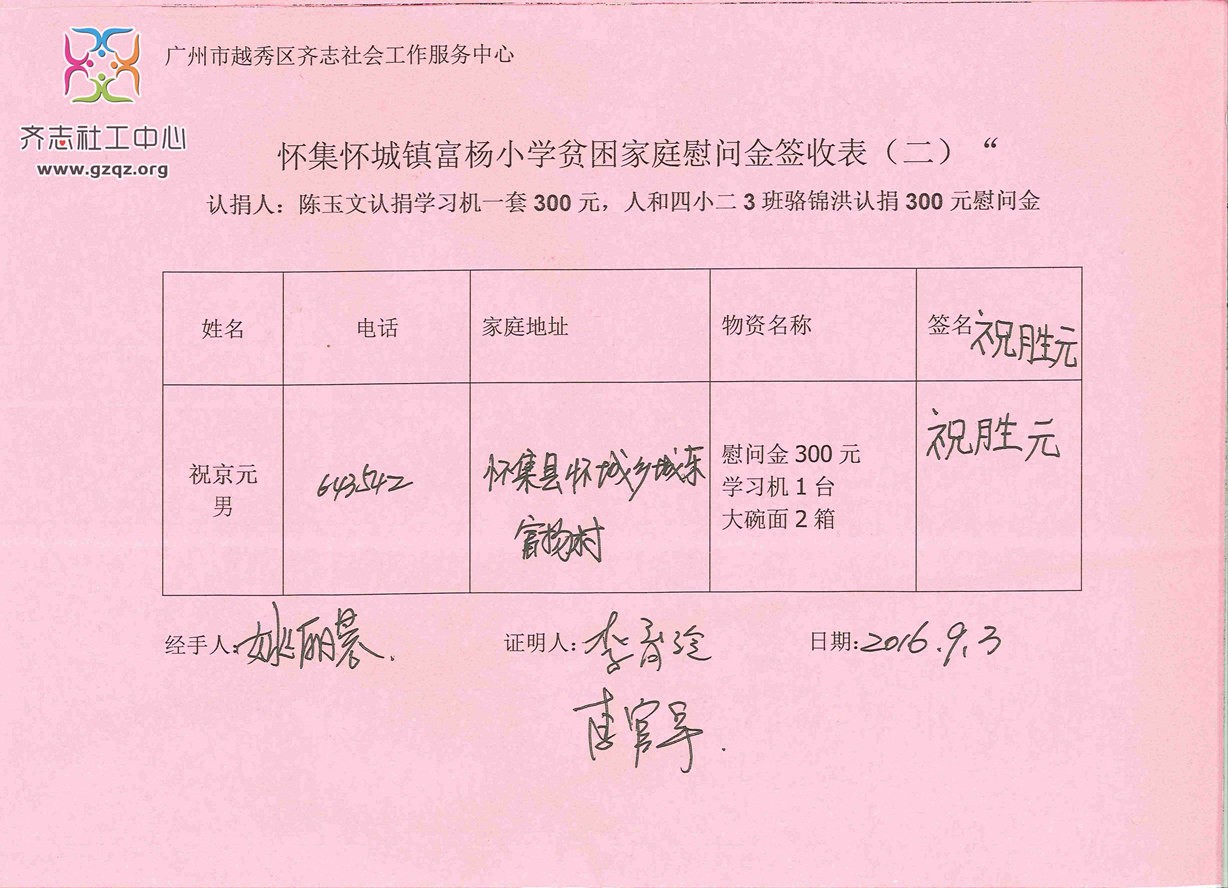 广州市越秀区齐志社会工作服务中心
齐志社工中心
www.gzqz.org
怀集怀城镇富杨小学贫困家庭慰问金签收表（二）“
认捐人：陈玉文认捐学习机一套 300 元，人和四小二 3 班骆锦洪认捐 300 元慰问金
姓名 电话 家庭地址 物资名称 签名 祝胜元
祝京元
男
643542
怀集县怀城乡城东
富杨村
慰问金 300 元
学习机 1 台
大碗面 2 箱
祝胜元
经手人: 姚丽
证明人: 李 日期: 2016.9.3
官